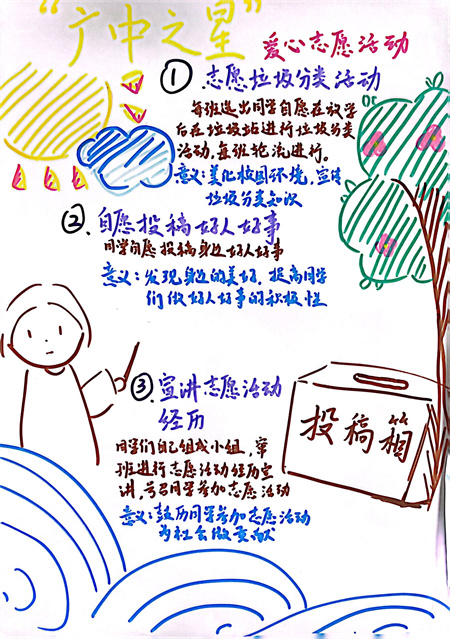 “广中之星”
爱心志愿活动
①志愿垃圾分类活动
每班选出同学自愿在放学
后在垃圾站进行垃圾分类
活动,每班轮流进行。
意义:美化校园环境,宣传
垃圾分类知识
②自愿投稿好人好事
同学自愿投稿身边好人好事
意义:发现身边的美好,提高同学
们做好人好事的积极性
③.宣讲志愿活动
经历
同学们自己组成小组,穿
班进行志愿活动经历宣
讲,号召同学参加志愿活动
意义:鼓历同学参加志愿活动
为社会做贡献
投稿箱